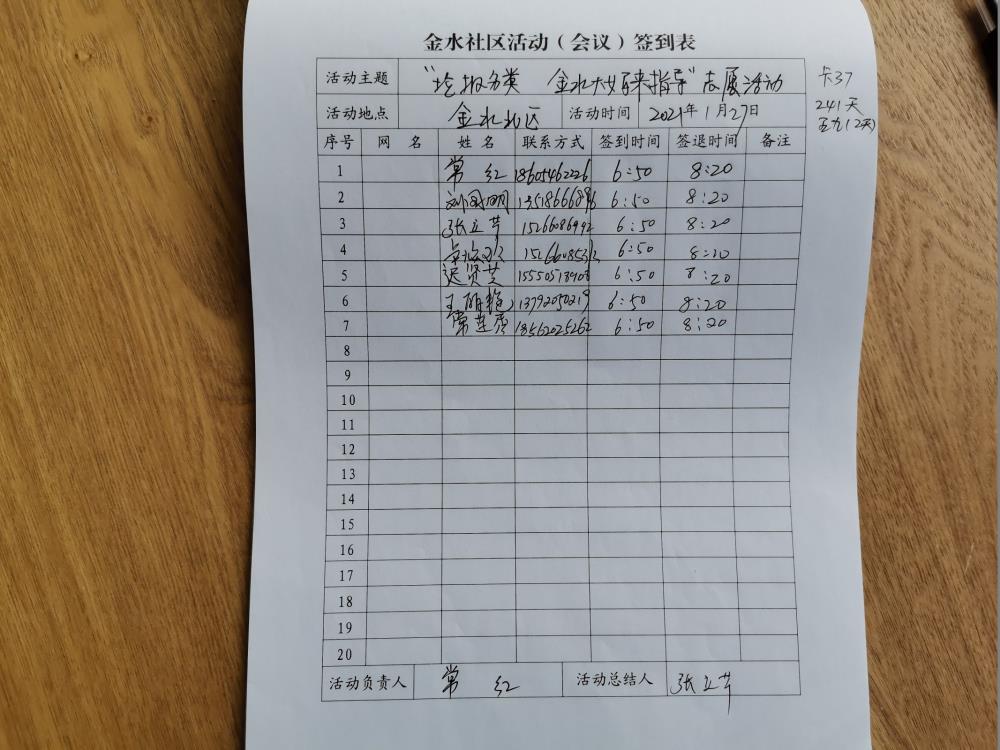 金水社区活动（会议）签到表
活动主题 "垃圾分类 金水大姨来指导"志愿活动
卡37
241天
五九(2天)
活动地点 金水北区 活动时间 2021年1月27日
序号 网 名 姓 名 联系方式 签到时间 签退时间 备注
1 常 红 18605462226 6:50 8:20
2 刘国明 6:50 8:20
3 张立芹 15266086992 6:50 8:20
4 6:50 8:20
5 迟贤芝 6:50 8:20
6 王丽艳 13792050219 6:50 8:20
7 常莲彦 18562025262 6:50 8:20
8
9
10
11
12
13
14
15
16
17
18
19
20
活动负责人 常 红 活动总结人 张立芹